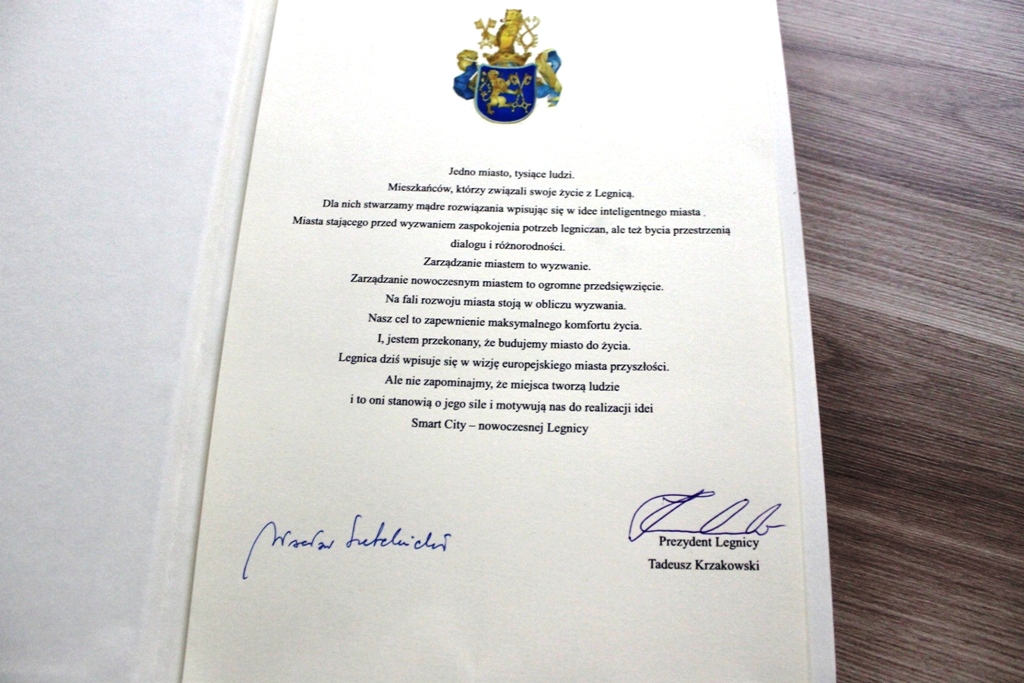 Jedno miasto, tysiące ludzi.
Mieszkańców, którzy związali swoje życie z Legnicą.
Dla nich stwarzamy mądre rozwiązania wpisując się w idee inteligentnego miasta .
Miasta stającego przed wyzwaniem zaspokojenia potrzeb legniczan, ale też bycia przestrzenią
dialogu i różnorodności.
Zarządzanie miastem to wyzwanie.
Zarządzanie nowoczesnym miastem to ogromne przedsięwzięcie.
Na fali rozwoju miasta stoją w obliczu wyzwania.
Nasz cel to zapewnienie maksymalnego komfortu życia.
I, jestem przekonany, że budujemy miasto do życia.
Legnica dziś wpisuje się w wizję europejskiego miasta przyszłości.
Ale nie zapominajmy, że miejsca tworzą ludzie
i to oni stanowią o jego sile i motywują nas do realizacji idei
Smart City – nowoczesnej Legnicy
Prezydent Legnicy
Tadeusz Krzakowski